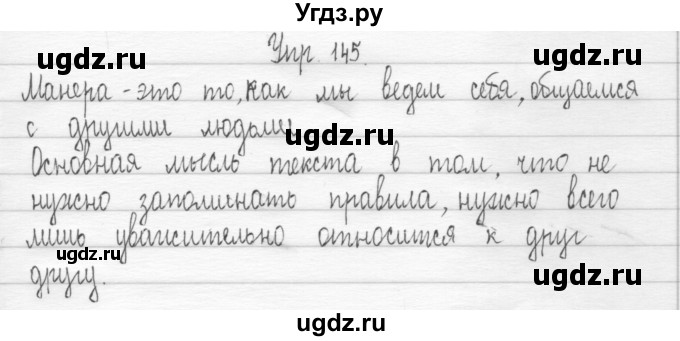 Угдз.ру
ugdz.ru ugdz.ru
Упр. 145.
ugdz.ru
Манера - это то, как мы ведем себя, общаемся
с другими людьми.
ugdz.ru
Основная мысль текста в том, что не
нужно запоминать правила, нужно всего
ugdz.ru ugdz.ru
лишь уважительно относится к друг
другу.
ugdz.ru
ugdz.ru